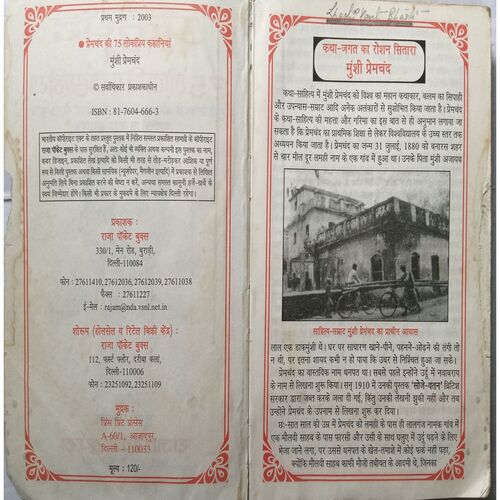 प्रथम मुद्रण : 2003
● प्रेमचंद की 75 लोकप्रिय कहानियां
मुंशी प्रेमचंद
© सर्वाधिकार प्रकाशकाधीन
ISBN : 81-7604-666-3
भारतीय कॉपीराइट एक्ट के तहत प्रस्तुत पुस्तक में निहित समस्त प्रकाशित सामग्री के कॉपीराइट
राजा पॉकेट बुक्स के पास सुरक्षित हैं, अतः कोई भी व्यक्ति अथवा कम्पनी इस पुस्तक का नाम,
कवर डिजाइन, प्रकाशित लेख इत्यादि को किसी भी तरह से तोड़-मरोड़कर आंशिक या पूर्ण
रूप से किसी पुस्तक अथवा किसी सामयिक (न्यूजपेपर, मैगजीन इत्यादि) में प्रकाशक से लिखित
अनुमति लिये बिना प्रकाशित करने की चेष्टा न करें, अन्यथा समस्त कानूनी हर्जे-खर्चे के
स्वयं जिम्मेदार होंगे। किसी भी प्रकार के मुकदमे के लिए न्यायक्षेत्र दिल्ली रहेगा।
प्रकाशक :
राजा पॉकेट बुक्स
330/1, मेन रोड, बुराड़ी,
दिल्ली-110084
फोन : 27611410, 27612036, 27612039, 27611038
फैक्स : 27611227
ई-मेल : rajam@nda.vsnl.net.in
शोरूम (होलसेल व रिटेल बिक्री केंद्र) :
राजा पॉकेट बुक्स
112, फर्स्ट फ्लोर, दरीबा कलां,
दिल्ली-110006
फोन : 23251092, 23251109
मुद्रक :
प्रिंस प्रिंट प्रोसेस
A-60/1, आजादपुर,
दिल्ली - 110033
मूल्य : 120/-
कथा-जगत का रोशन सितारा
मुंशी प्रेमचंद
कथा-साहित्य में मुंशी प्रेमचंद को विश्व का महान कथाकार, कलम का सिपाही
और उपन्यास-सम्राट आदि अनेक अलंकारों से सुशोभित किया जाता है। प्रेमचंद
के कथा-साहित्य की महत्ता और गरिमा का इस बात से ही अनुमान लगाया जा
सकता है कि प्रेमचंद का प्राथमिक शिक्षा से लेकर विश्वविद्यालय के उच्च स्तर तक
अध्ययन किया जाता है। प्रेमचंद का जन्म 31 जुलाई, 1880 को बनारस शहर
से चार मील दूर लमही नाम के एक गांव में हुआ था। उनके पिता मुंशी अजायब
साहित्य-सम्राट मुंशी प्रेमचंद का प्राचीन आवास
लाल एक डाकमुंशी थे। घर पर साधारण खाने-पीने, पहनने-ओढ़ने की तंगी तो
न थी, पर इतना शायद कभी न हो पाया कि उधर से निश्चिंत हुआ जा सके।
प्रेमचंद का वास्तविक नाम धनपत था। सबसे पहले इन्होंने उर्दू में नवाबराय
के नाम से लिखना शुरू किया। सन् 1910 में उनकी पुस्तक 'सोजे-वतन' ब्रिटिश
सरकार द्वारा जब्त करके जला दी गई, किंतु उनकी लेखनी झुकी नहीं और तब
उन्होंने प्रेमचंद के उपनाम से लिखना शुरू कर दिया।
छः-सात साल की उम्र में प्रेमचंद को लमही के पास ही लालगंज नामक गांव में
एक मौलवी साहब के पास फारसी और उसी के साथ घलुए में उर्दू पढ़ने के लिए
भेजा जाने लगा, पर उससे धनपत के खेल-तमाशे में कोई फर्क नहीं पड़ा,
क्योंकि मौलवी साहब काफी मौजी तबीयत के आदमी थे, जिनका